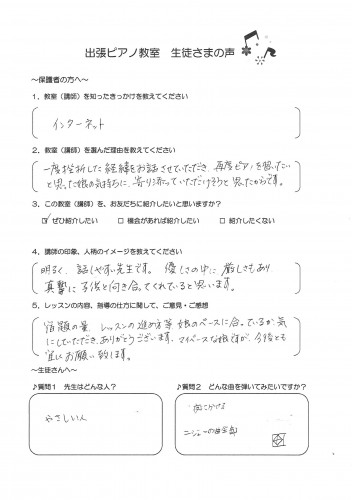 出張ピアノ教室 生徒さまの声
～保護者の方へ～
1、教室（講師）を知ったきっかけを教えてください
インターネット
2、教室（講師）を選んだ理由を教えてください
一度挫折した経緯をお話させていただき、再度ピアノを習いたい
と思った娘の気持ちに、寄り添っていただけそうと思ったからです。
3、この教室（講師）を、お友だちに紹介したいと思いますか？
☑ ぜひ紹介したい □ 機会があれば紹介したい □ 紹介したくない
4、講師の印象、人柄のイメージを教えてください
明るく、話しやすい先生です。優しさの中に厳しさもあり
真摯に子供と向き合てくれていると思います。
5、レッスンの内容、指導の仕方に関して、ご意見・ご感想
宿題の量、レッスンの進め方等 娘のペースに合っているか、気
にしていただき、ありがとうございます。マイペースな娘ですが、今後とも
宜しくお願い致します。
～生徒さんへ～
♪質問1 先生はどんな人？
やさしい人
♪質問2 どんな曲を弾いてみたいですか？
夜にかける
の曲全部